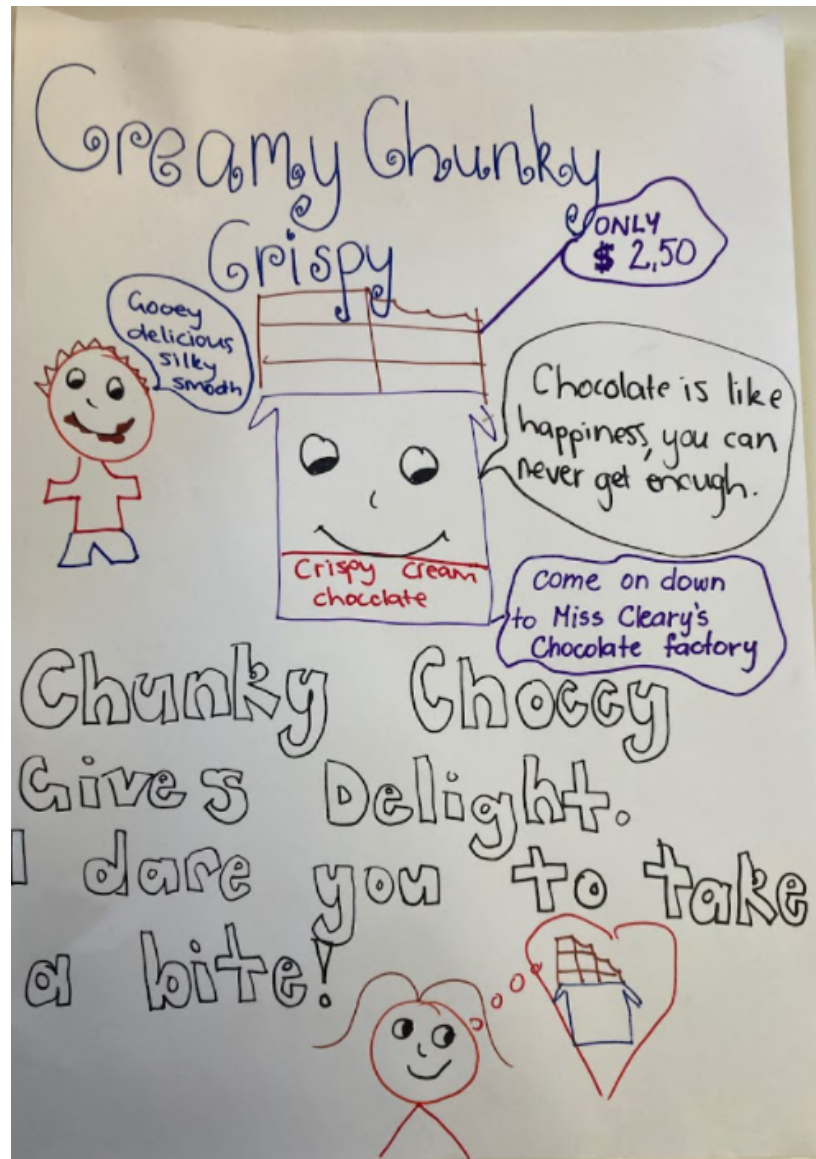 Creamy Chunky
Crispy
ONLY
$ 2,50
Gooey
delicious
silky
smooth
Chocolate is like
happiness, you can
never get enough.
Crispy cream
chocolate
come on down
to Miss Cleary's
Chocolate factory
Chunky Choccy
Gives Delight.
I dare you to take
a bite!